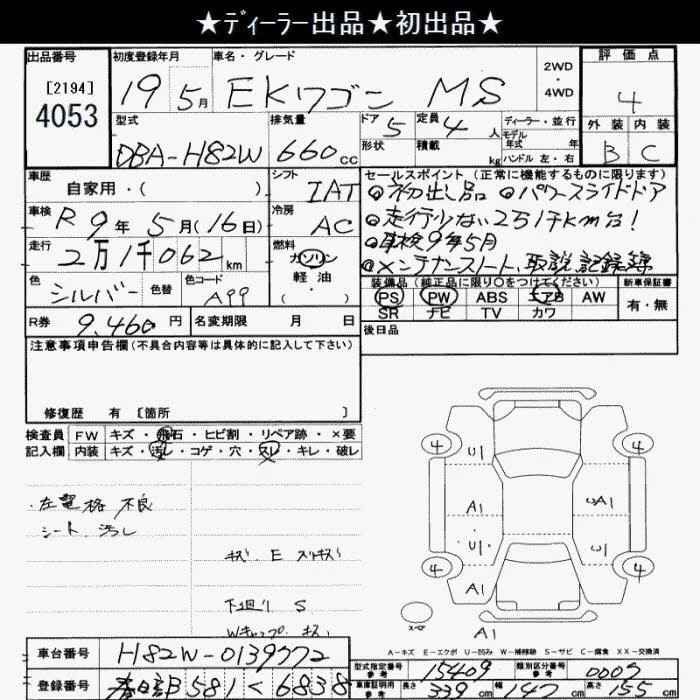 ★ディーラー出品★初出品★
出品番号 初度登録年月 車名・グレード 2WD・4WD 評価点
[2194] 19 5月 EKワゴン MS 4
4053
型式 排気量 ドア 5 定員 4 人 ディーラー・並行 外装 内装
モデル年式 年
DBA-H82W 660cc 形状 積載 kg ハンドル 左・右 B C
車歴 シフト セールスポイント(正常に機能するものに限ります)
自家用・( ) IAT ◎初出し品 ◎パワースライドドア
車検 R9年5月(16日) 冷房 AC ◎走行少ない251千km台!
走行 2万1千062km 燃料 ガソリン 軽・油 ・( ) ◎車検9年5月
◎メンテナンスノート、取説、記録簿
色 シルバー 色替 色コード A99 装備品(純正品に限り〇をつけてください) 新車保証書
PS PW ABS エアB AW 有・無
R券 9,460円 名変期限 月 日 SR ナビ TV カワ
注意事項申告欄(不具合内容等は具体的に記入して下さい) 後日品
修復歴 有 〔箇所 〕
検査員 FW キズ・飛石・ヒビ割・リペア跡・×要
記入欄 内装 キズ・汚レ・コゲ・穴・スレ・キレ・破レ
4 U1 4
・左電格 不良
シート 汚レ
A1 UA1
U1 U1
キズ E スリキズ
4 4
下廻り S A1
Wキャップ キズ スペア
A-キズ E-エクボ U-凹み W-補修跡 S-サビ C-腐食 XX-交換済
車台番号 H82W-0139772 型式指定番号 参考 15409 類別区分番号 参考 0007
登録番号 春日部581く6838 車庫証明用 参考 長さ 339cm 幅 147cm 高さ 155cm